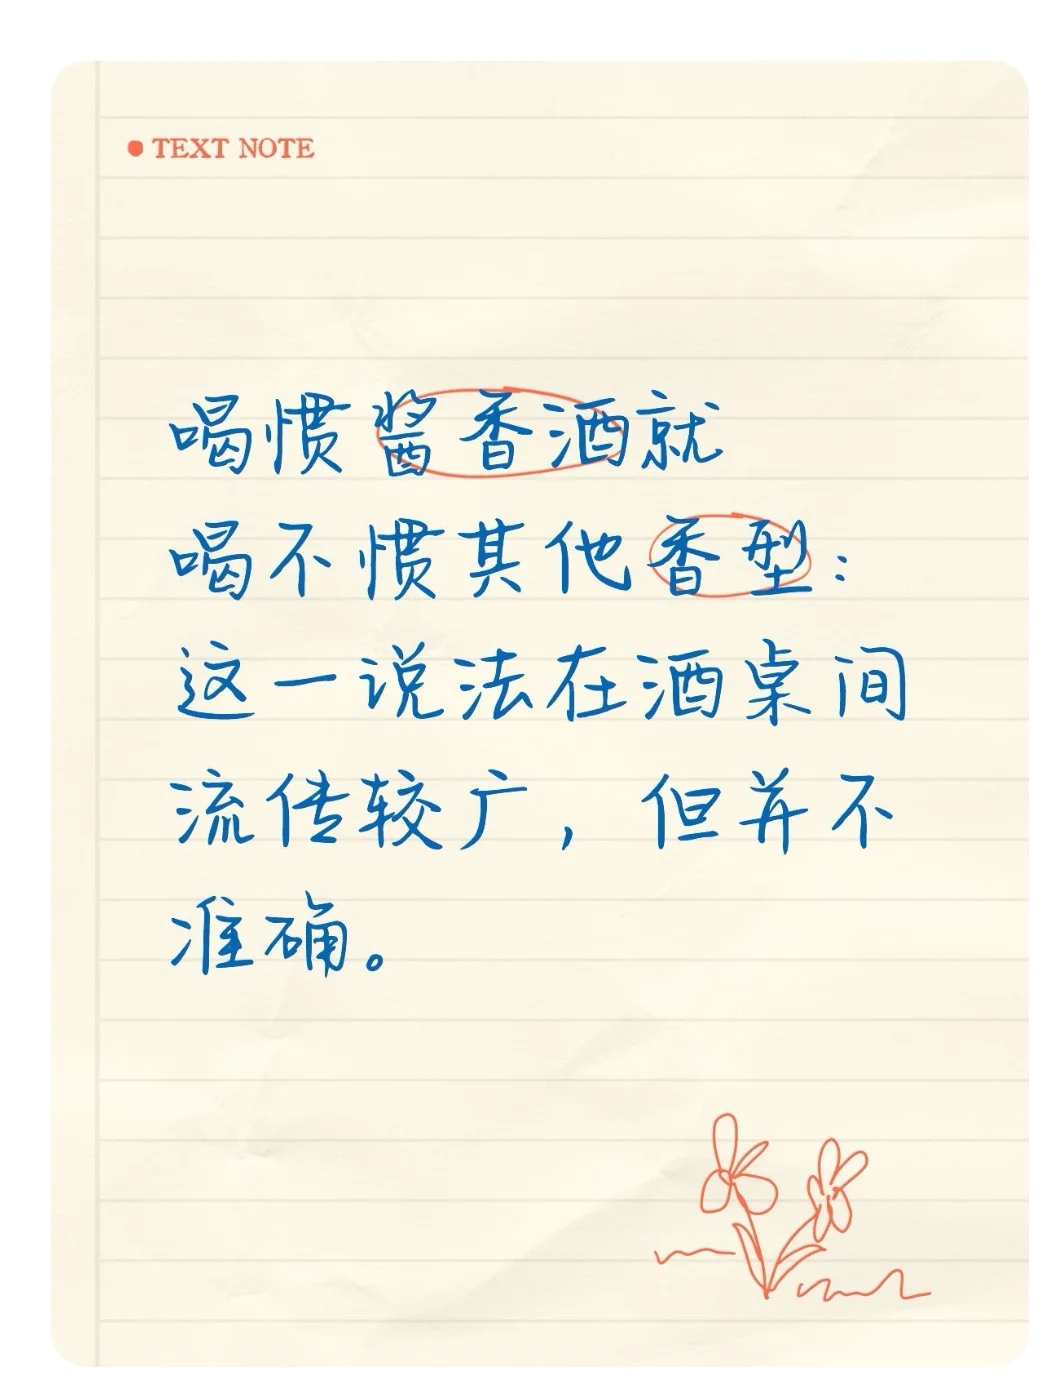 TEXT NOTE
喝惯酱香酒就
喝不惯其他香型：
这一说法在酒桌间
流传较广，但并不
准确。